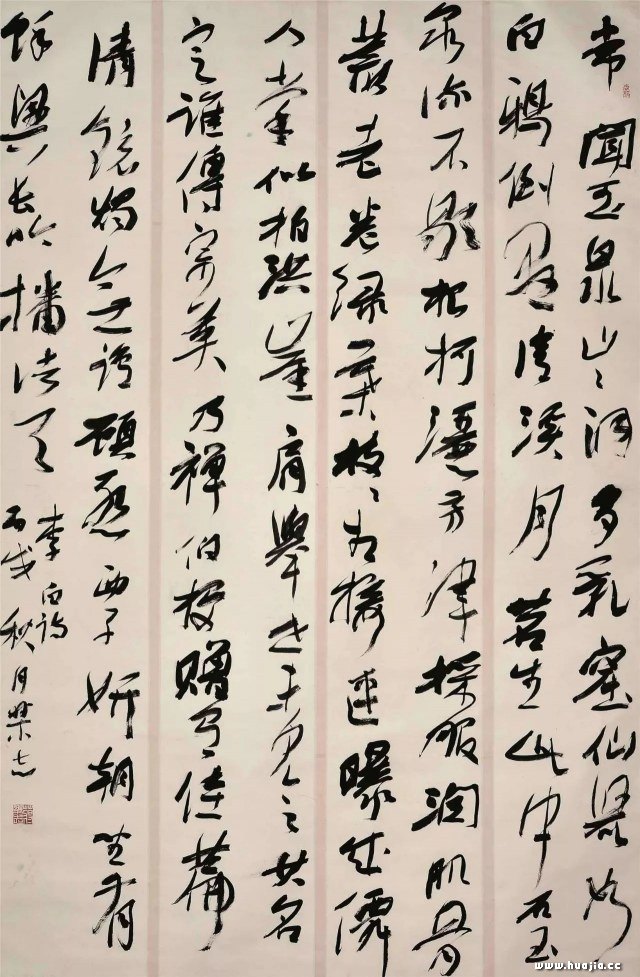 常聞玉泉山々洞多乳窟仙鼠如
白鴉倒懸清溪月茗生此中石玉
泉流不歇根柯灑芳津採服潤肌骨
叢老卷綠葉枝々相接連曝成僊
人掌似拍洪崖肩舉世未見之其名
定誰傳宗英乃禪伯投贈有佳篇
清鏡燭無鹽顧慙西子妍朝坐有
餘興長吟播諸天
李白詩
丙戌秋月
www.huajia.cc